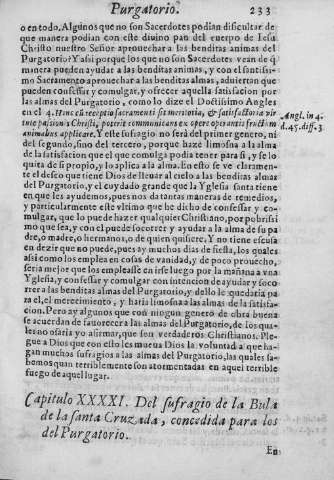 Purgatorio. 233
o en todo. Algunos que no son Sacerdotes podian dificultar de
que manera podian con este diuino pan del cuerpo de Iesu
Christo nuestro Señor aprouechar a las benditas animas del
Purgatorio? Y assi porque los que no son Sacerdotes vean de q̃
manera pueden ayudar a las benditas animas, y con el sontissi-
mo Sacramento aprouechar a las benditas almas, aduiertan que
pueden confessar y comulgar, y ofrecer aquella satisfacion por
las almas del Purgatorio, como lo dize el Doctissimo Angles
en el 4. Hunc cũ receptio sacramenti sit meritoria, & satisfactoria vir
tute passionis Christi, poterit communicans ex opere operantis fructum
animabus applicare. Y este sufragio no será del primer genero, ni
del segundo, sino del tercero, porque haze limosna a la alma
de la satisfacion que el que comulga podia tener para si, y se lo
quita de si propio, y lo aplica a la alma. En esto se ve claramen-
te el desseo que tiene Dios de lleuar al cielo a las benditas almas
del Purgatorio, y el cuydado grande que la Yglesia santa tiene
en que les ayudemos, pues nos da tantas maneras de remedios,
y particularmente este vltimo que he dicho de confessar, y co-
mulgar, que lo puede hazer qualquier Christiano, por pobrissi
mo que sea, y con el puede socorrer y ayudar a la alma de su pa
dre, o madre, o hermano, o de quien quisiere. Y no tiene escusa
en dezir que no puede, pues ay muchos dias de fiesta, los quales
assi como los emplea en cosas de vanidad, y de poco prouecho,
seria mejor que los empleasse en irse luego por la mañana a vna
Yglesia, y confessar y comulgar con intencion de ayudar y soco
rrer a las benditas almas del Purgatorio, y dello le quedaria pa
ra el, el merecimiento, y haria limosna a las almas de la satisfa-
cion. Pero ay algunos que con ningun genero de obra buena
se acuerdan de fauorecer a las almas del Purgatorio, de los qua-
les no osaria yo afirmar, que son verdaderos Christianos. Ple-
gue a Dios que con esto les mueua Dios la voluntad a que ha-
gan muchos sufragios a las almas del Purgatorio, las quales sa-
bemos quan terriblemente son atormentadas en aquel terrible
fuego de aquel lugar.
Angl. in 4.
d. 45. diff. 3
Capitulo XXXXI. Del sufragio de la Bula
de la santa Cruzada, concedida para los
del Purgatorio.
En